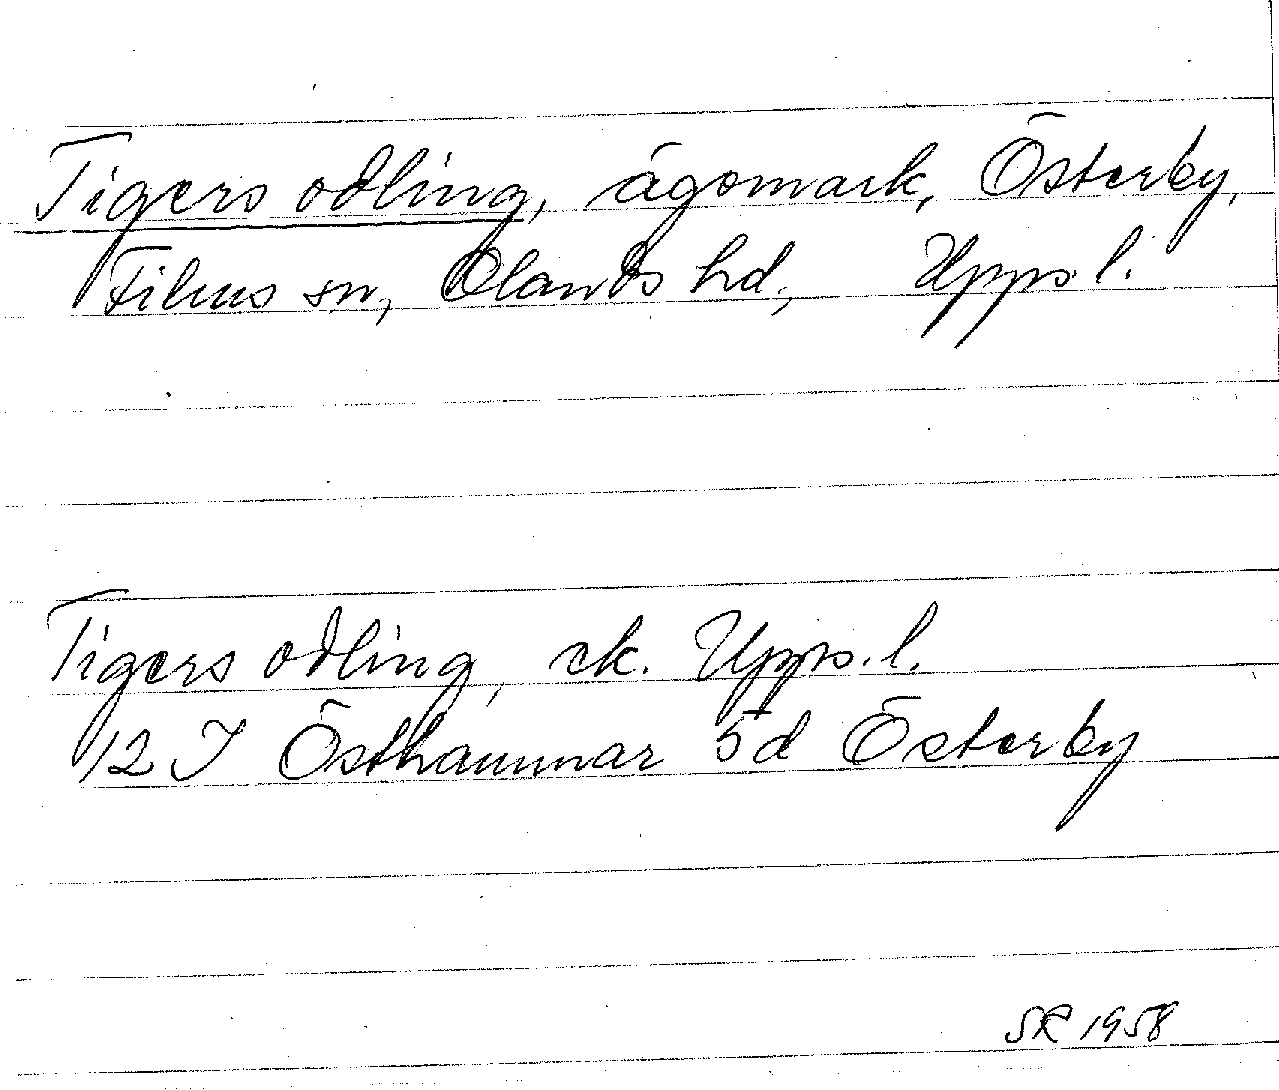 Tigers odling, ägomark, Österby,
Films sn, Olands hd, Upps.l.
Tigers odling, ek. Upps.l.
12 I Östhammar 5d Österby
SR 1958